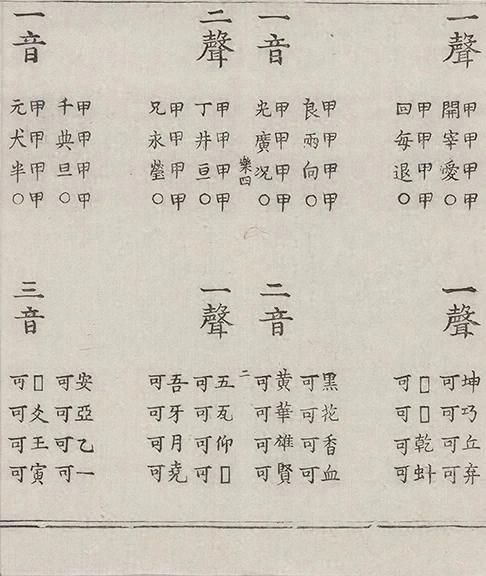 一聲
甲甲甲甲
開宰愛○
甲甲甲甲
回每退○
一音
甲甲甲甲
良兩向○
甲甲甲甲
光廣况○
樂四
二聲
甲甲甲甲
丁井亘○
甲甲甲甲
兄永瑩○
一音
甲甲甲甲
千典旦○
甲甲甲甲
元犬半○
一聲
坤巧丘弃
可可可可
□□乾虯
可可可可
二音
黑花香血
可可可可
黄華雄賢
可可可可
二
一聲
五瓦仰□
可可可可
吾牙月堯
可可可可
三音
安亞乙一
可可可可
□爻王寅
可可可可